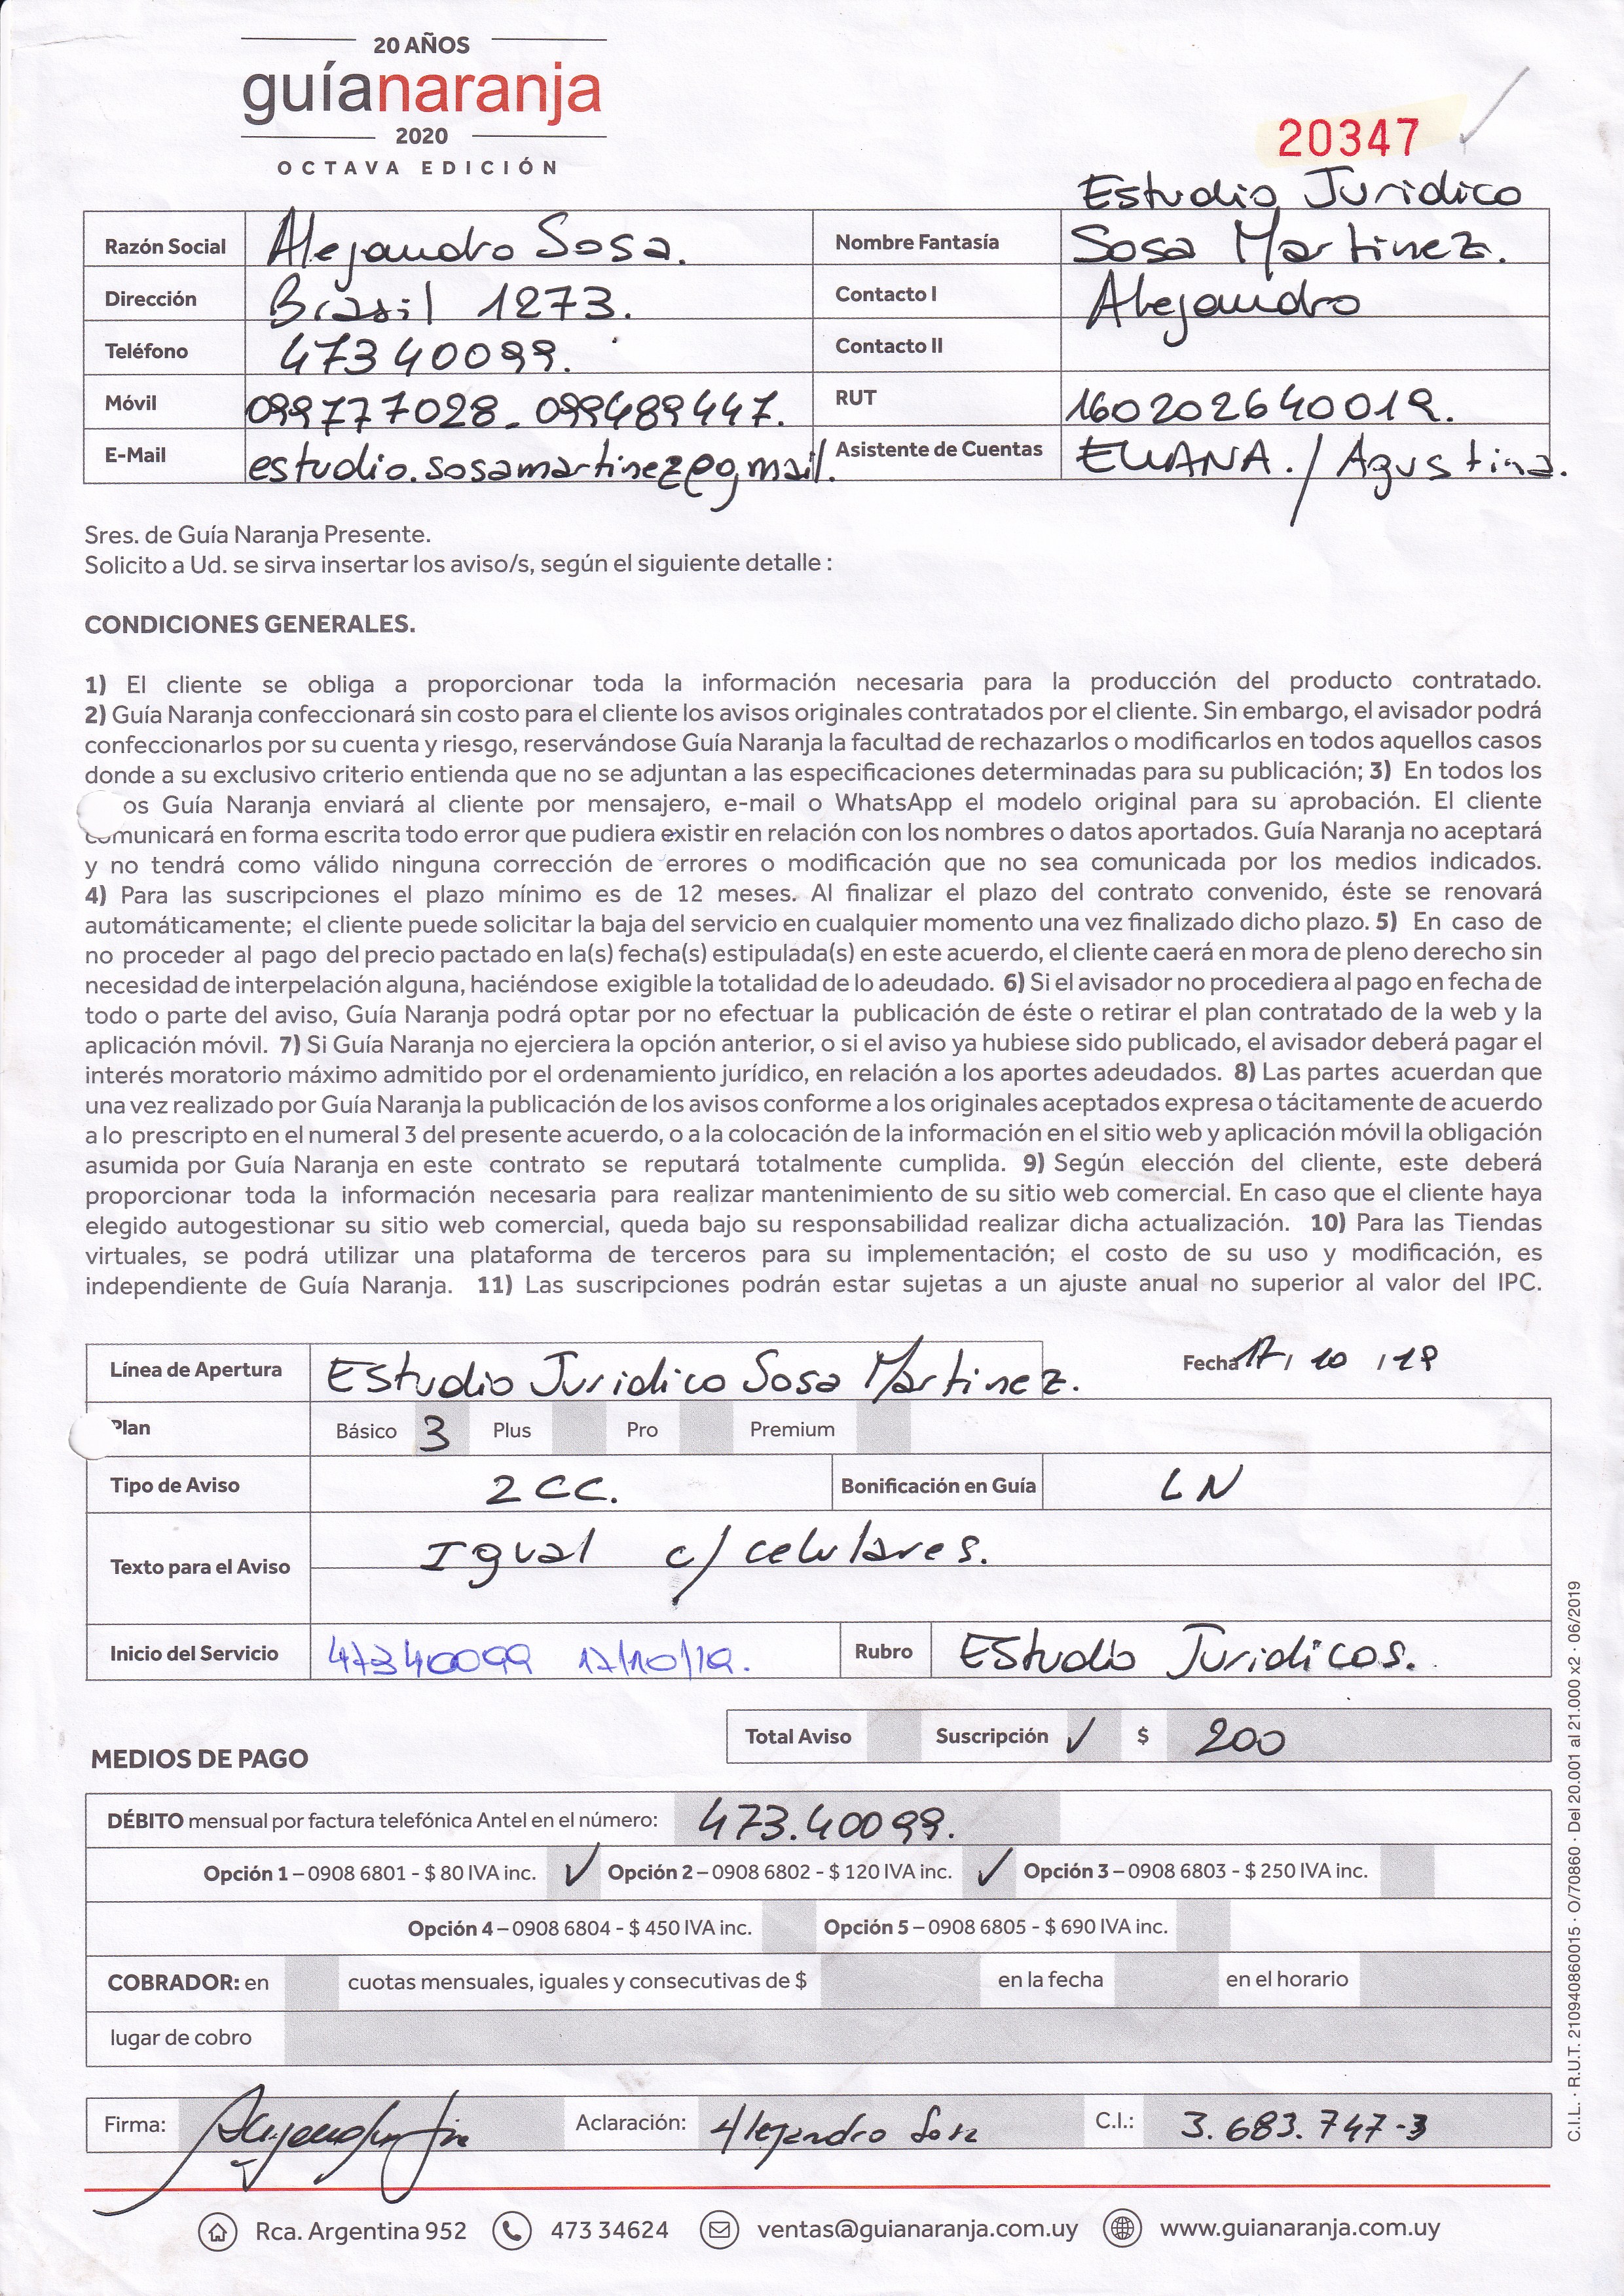 20 AÑOS
guíanaranja
2020
OCTAVA EDICIÓN
20347
Estudio Juridico
Razón Social Alejandro Sosa. Nombre Fantasía Sosa Martinez.
Dirección Brasil 1273. Contacto I Alejandro
Teléfono 47340099. Contacto II
Móvil 099777028 - 099489447. RUT 160202640019.
E-Mail estudio.sosamartinez@gmail. Asistente de Cuentas ELIANA. / Agustina.
Sres. de Guía Naranja Presente.
Solicito a Ud. se sirva insertar los aviso/s, según el siguiente detalle :
CONDICIONES GENERALES.
1) El cliente se obliga a proporcionar toda la información necesaria para la producción del producto contratado.
2) Guía Naranja confeccionará sin costo para el cliente los avisos originales contratados por el cliente. Sin embargo, el avisador podrá
confeccionarlos por su cuenta y riesgo, reservándose Guía Naranja la facultad de rechazarlos o modificarlos en todos aquellos casos
donde a su exclusivo criterio entienda que no se adjuntan a las especificaciones determinadas para su publicación; 3) En todos los
os Guía Naranja enviará al cliente por mensajero, e-mail o WhatsApp el modelo original para su aprobación. El cliente
comunicará en forma escrita todo error que pudiera existir en relación con los nombres o datos aportados. Guía Naranja no aceptará
y no tendrá como válido ninguna corrección de errores o modificación que no sea comunicada por los medios indicados.
4) Para las suscripciones el plazo mínimo es de 12 meses. Al finalizar el plazo del contrato convenido, éste se renovará
automáticamente; el cliente puede solicitar la baja del servicio en cualquier momento una vez finalizado dicho plazo. 5) En caso de
no proceder al pago del precio pactado en la(s) fecha(s) estipulada(s) en este acuerdo, el cliente caerá en mora de pleno derecho sin
necesidad de interpelación alguna, haciéndose exigible la totalidad de lo adeudado. 6) Si el avisador no procediera al pago en fecha de
todo o parte del aviso, Guía Naranja podrá optar por no efectuar la publicación de éste o retirar el plan contratado de la web y la
aplicación móvil. 7) Si Guía Naranja no ejerciera la opción anterior, o si el aviso ya hubiese sido publicado, el avisador deberá pagar el
interés moratorio máximo admitido por el ordenamiento jurídico, en relación a los aportes adeudados. 8) Las partes acuerdan que
una vez realizado por Guía Naranja la publicación de los avisos conforme a los originales aceptados expresa o tácitamente de acuerdo
a lo prescripto en el numeral 3 del presente acuerdo, o a la colocación de la información en el sitio web y aplicación móvil la obligación
asumida por Guía Naranja en este contrato se reputará totalmente cumplida. 9) Según elección del cliente, este deberá
proporcionar toda la información necesaria para realizar mantenimiento de su sitio web comercial. En caso que el cliente haya
elegido autogestionar su sitio web comercial, queda bajo su responsabilidad realizar dicha actualización. 10) Para las Tiendas
virtuales, se podrá utilizar una plataforma de terceros para su implementación; el costo de su uso y modificación, es
independiente de Guía Naranja. 11) Las suscripciones podrán estar sujetas a un ajuste anual no superior al valor del IPC.
Línea de Apertura Estudio Juridico Sosa Martinez. Fecha 17/ 10 /19
Plan Básico 3 Plus Pro Premium
Tipo de Aviso 2CC. Bonificación en Guía LN
Texto para el Aviso Igual c/ celulares.
Inicio del Servicio 47340099 17/10/19. Rubro Estudio Juridicos.
Total Aviso Suscripción ✓ $ 200
MEDIOS DE PAGO
DÉBITO mensual por factura telefónica Antel en el número: 473.40099.
Opción 1 – 0908 6801 - $ 80 IVA inc. ✓ Opción 2 – 0908 6802 - $ 120 IVA inc. ✓ Opción 3 – 0908 6803 - $ 250 IVA inc.
Opción 4 – 0908 6804 - $ 450 IVA inc. Opción 5 – 0908 6805 - $ 690 IVA inc.
COBRADOR: en cuotas mensuales, iguales y consecutivas de $ en la fecha en el horario
lugar de cobro
Firma: Aclaración: Alejandro Sosa C.I.: 3.683.747-3
Rca. Argentina 952 473 34624 ventas@guianaranja.com.uy www.guianaranja.com.uy
C.I.L. · R.U.T. 210940860015 · O/70860 · Del 20.001 al 21.000 x2 · 06/2019